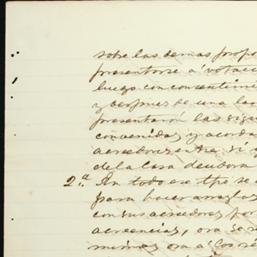 sobre las demas propo
presentarse á votaci
luego con consentimi
y despues de una la
presentaron las sigui
convenidas y acorda
acreedores entre sí y
de la casa deudora
2.a En todo ese tpo se
para hacer arreglos
con sus acreedores por
acreencias, ora se